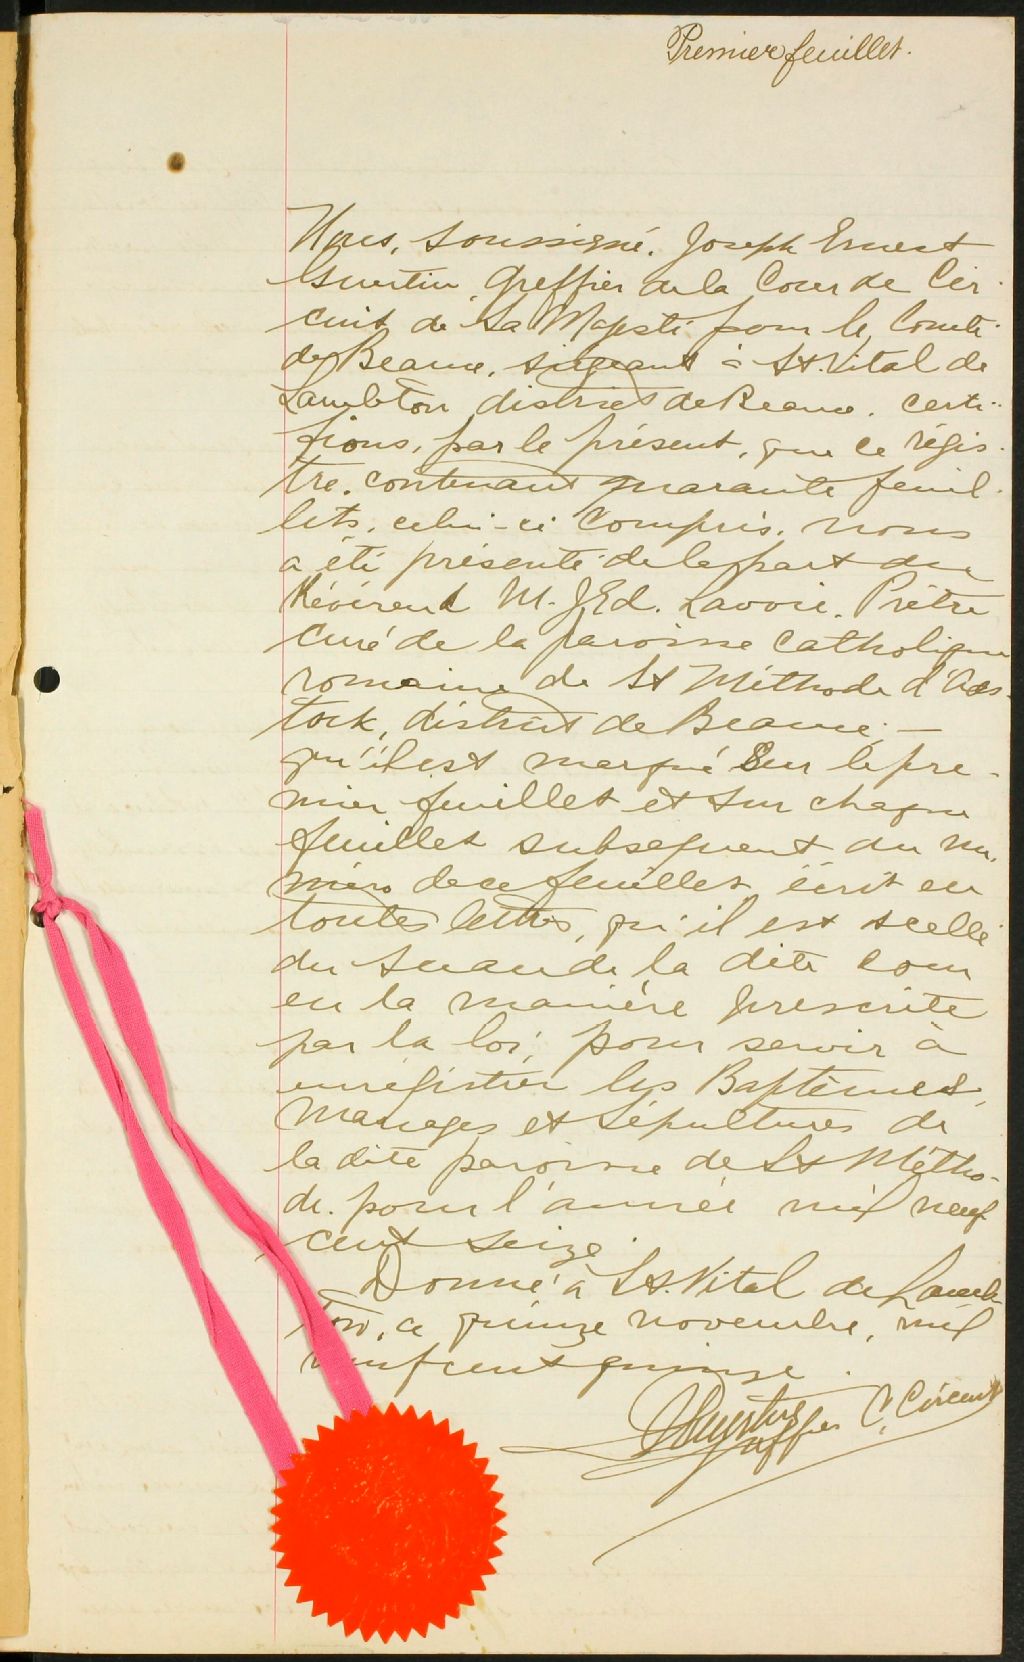 Premier feuillet.
Nous, soussigné, Joseph Ernest
Greffier de la Cour de Cir-
cuit de Sa Majesté pour le Comté
de Beauce, siégeant à St. Vital de
Lambton district de Beauce. certi-
fions, par le présent, que ce régis-
tre. contenant quarante feuil-
lets, celui-ci compris, nous
a été présenté de la part du
Révérend M. J Ed. Lavoie. Prêtre
curé de la paroisse catholique
romaine de St Méthode d'Ads-
tock, district de Beauce, —
qu'il est marqué sur le pre-
mier feuillet et sur chaque
feuillet subsequent du nu-
méro de ce feuillet, écrit en
toutes lettres, qu'il est scellé
du sceau de la dite cour
en la manière prescrite
par la loi, pour servir à
enrégistrer les Baptêmes,
Mariages et Sépultures de
la dite paroisse de St Métho-
de. pour l'année mil neuf
cent seize.
Donné à St. Vital de Lamb-
ton, ce quinze novembre, mil
neuf cent quinze.
Greffier C. Circuit